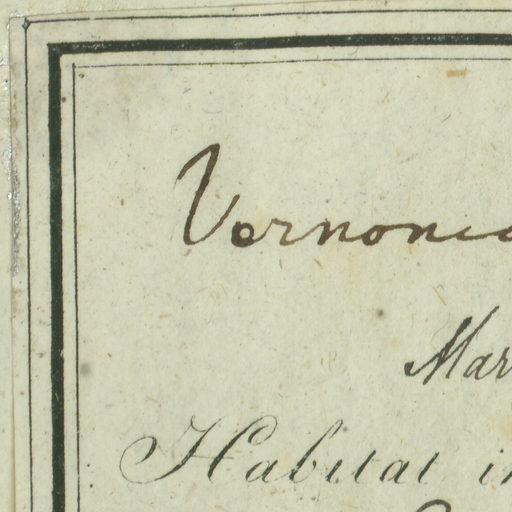 Vernonia
Mar
Habitat in